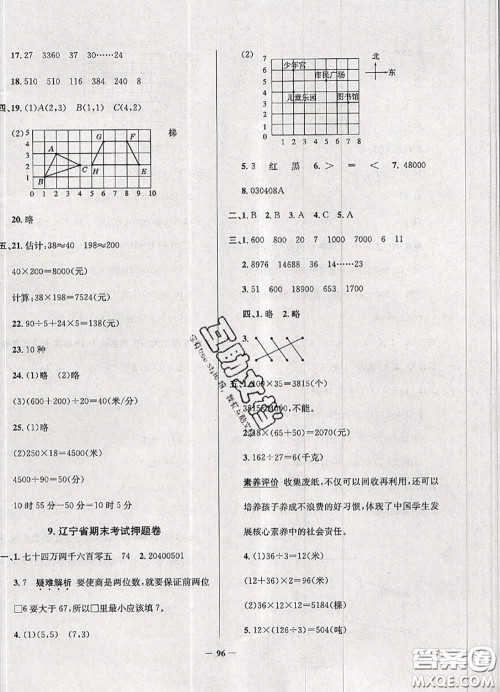 17. 27 3360 37 35……24
18. 510 510 5110 384 240 8
四、19. (1)A(2,3) B(1,1) C(4,2)
(2) 5 4 3 2 1 0 1 2 3 4 5 6 7 8 9 10 A B C G F H E 梯
20. 略
五、21. 估计:38≈40 198≈200
40×200=8000(元)
计算:38×198=7524(元)
22. 90÷5+24×5=138(元)
23. 10 种
24. (1)略 (2)略
(3)(200+240)÷20=22(米/分)
25. (1)略
(2)(250×18=4500(米)
4500÷90=50(分)
10 时 55 分-50 分=10 时 5 分
9. 辽宁省期末考试押题卷
一、1. 七十四万两千六百零五 74 2. 20400501
3. 7 疑难解析 要使商是两位数,就要保证前两位
□6 要大于 67,所以□里最小应该填 7。
4. (1)(5,5) (7,3)
(2) 7 6 5 4 3 2 1 0 1 2 3 4 5 6 7 8 少年宫 市民广场 儿童乐园 图书馆 北 东
5. 3 红 黑 6. > = < 7. 48000
8. 030408A
二、1. B 2. B 3. A
三、1. 600 800 20 7 7000 6 11
2. 8976 14328 34 16……23
3. 51 690 18900 15
四、1. 略 2. 略
3.
五、1. 109×35=3815(个)
3815<4000,不能。
2. 18×(65+50)=2070(元)
3. 162÷27=6(千克)
素养评价 收集废纸,不仅可以回收再利用,还可以
培养孩子养成不浪费的好习惯,体现了中国学生发
展核心素养中的责任担当。
4. (1)36×(12-3)=324(棵)
(12+36)×2=96(棵)
(2)36×12×2=864(棵)
5. 12×(18+24)=504(吨)
— 96 —
互助文档
答案圈
MXQE.COM